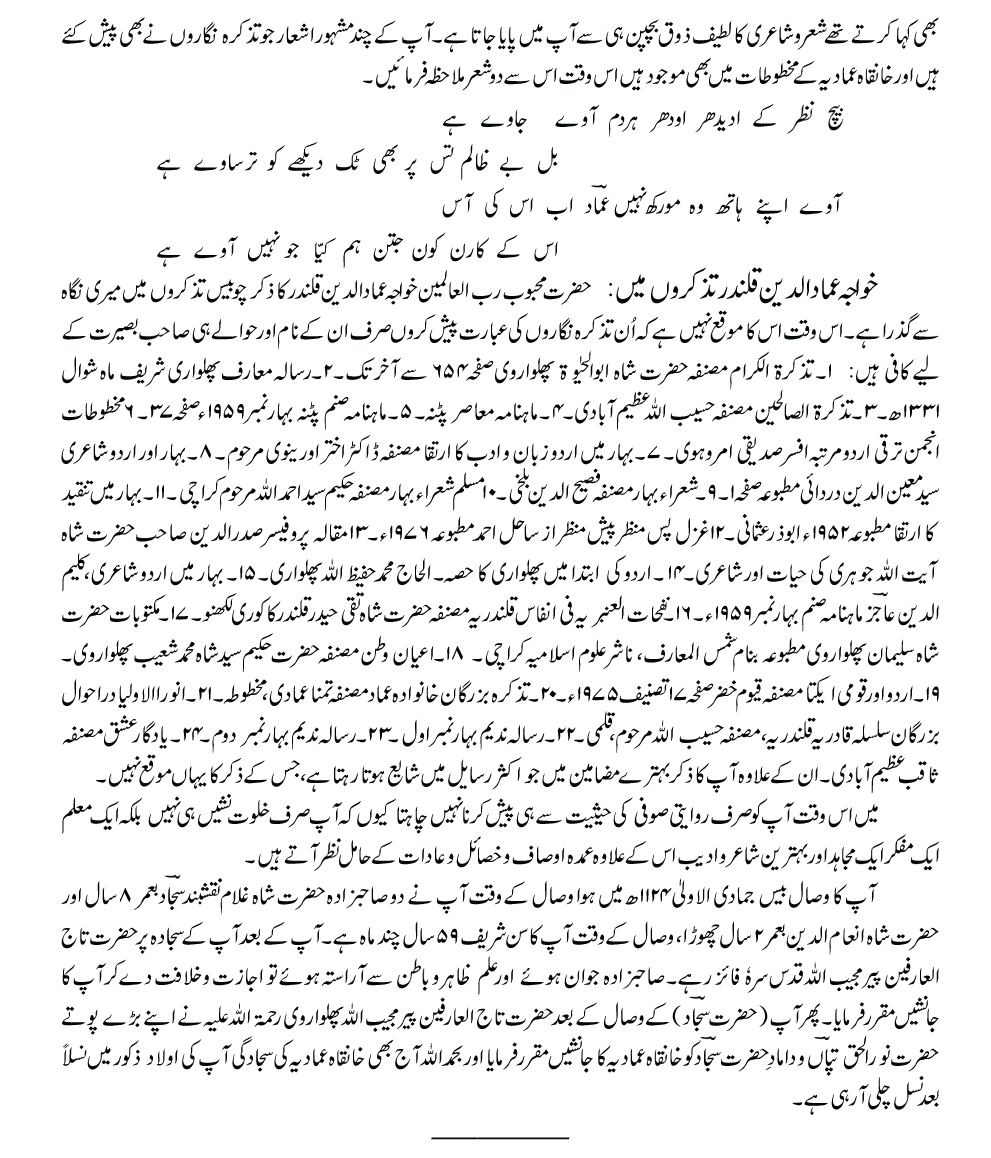 بھی کہا کرتے تھے شعر و شاعری کا لطیف ذوق بچپن ہی سے آپ میں پایا جاتا ہے۔ آپ کے چند مشہور اشعار جو تذکرہ نگاروں نے بھی پیش کئے
ہیں اور خانقاہ عمادیہ کے مخطوطات میں بھی موجود ہیں اس وقت اس سے دو شعر ملاحظہ فرمائیں۔
بیچ نظر کے ادیدھر اودھر ہردم آوے جاوے ہے
بل بے ظالم تس پر بھی ٹک دیکھے کو ترساوے ہے
آوے اپنے ہاتھ وہ مورکھ نہیں عمادؔ اب اس کی آس
اس کے کارن کون جتن ہم کیّا جو نہیں آوے ہے
خواجہ عماد الدین قلندر تذکروں میں: حضرت محبوب رب العالمین خواجہ عماد الدین قلندر کا ذکر چوبیس تذکروں میں میری نگاہ
سے گذرا ہے۔ اس وقت اس کا موقع نہیں ہے کہ اُن تذکرہ نگاروں کی عبارت پیش کروں صرف ان کے نام اور حوالے ہی صاحب بصیرت کے
لیے کافی ہیں: ۱۔ تذکرۃ الکرام مصنفہ حضرت شاہ ابوالحیٰوۃ پھلواروی صفحہ ۶۵۴ سے آخر تک۔ ۲۔ رسالہ معارف پھلواری شریف ماہ شوال
۱۳۳۱ھ۔ ۳۔ تذکرۃ الصالحین مصنفہ حسیب اللہ عظیم آبادی۔ ۴۔ ماہنامہ معاصر پٹنہ۔ ۵۔ ماہنامہ صنم پٹنہ بہار نمبر ۱۹۵۹ء صفحہ ۳۷۔ ۶ مخطوطات
انجمن ترقی اردو مرتبہ افسر صدیقی امروہوی۔ ۷۔ بہار میں اردو زبان و ادب کا ارتقا مصنفہ ڈاکٹر اختر اورینوی مرحوم۔ ۸۔ بہار اور اردو شاعری
سید معین الدین دردائی مطبوعہ صفحہ ۱۔ ۹۔ شعراء بہار مصنفہ فصیح الدین بلخی۔ ۱۰ مسلم شعراء بہار مصنفہ حکیم سید احمد اللہ مرحوم کراچی۔ ۱۱۔ بہار میں تنقید
کا ارتقا مطبوعہ ۱۹۵۲ء ابوذر عثمانی۔ ۱۲ غزل پس منظر پیش منظر از ساحل احمد مطبوعہ ۱۹۷۶ء۔ ۱۳ مقالہ پروفیسر صدر الدین صاحب حضرت شاہ
آیت اللہ جوہری کی حیات اور شاعری۔ ۱۴۔ اردو کی ابتدا میں پھلواری کا حصہ۔ الحاج محمد حفیظ اللہ پھلواری۔ ۱۵۔ بہار میں اردو شاعری، کلیم
الدین عاجزؔ ماہنامہ صنم بہار نمبر ۱۹۵۹ء۔ ۱۶۔ نفحات العنبریہ فی انفاس قلندریہ مصنفہ حضرت شاہ تقی حیدر قلندر کاکوری لکھنو۔ ۱۷۔ مکتوبات حضرت
شاہ سلیمان پھلواروی مطبوعہ بنام شمس المعارف، ناشر علوم اسلامیہ کراچی۔ ۱۸۔ اعیان وطن مصنفہ حضرت حکیم سید شاہ محمد شعیب پھلواروی۔
۱۹۔ اردو اور قومی ایکتا مصنفہ قیوم خضر صفحہ ۱۷ تصنیف ۱۹۷۵ء۔ ۲۰۔ تذکرہ بزرگان خانوادہ عماد مصنفہ تمنا عمادی، مخطوطہ۔ ۲۱۔ انورالاولیا در احوال
بزرگان سلسلہ قادریہ قلندریہ، مصنفہ حسیب اللہ مرحوم، قلمی۔ ۲۲۔ رسالہ ندیم بہار نمبر اول۔ ۲۳۔ رسالہ ندیم بہار نمبر دوم۔ ۲۴۔ یادگار عشق مصنفہ
ثاقب عظیم آبادی۔ ان کے علاوہ آپ کا ذکر بہترے مضامین میں جو اکثر رسایل میں شایع ہوتا رہتا ہے، جس کے ذکر کا یہاں موقع نہیں۔
میں اس وقت آپ کو صرف روایتی صوفی کی حیثیت سے ہی پیش کرنا نہیں چاہتا کیوں کہ آپ صرف خلوت نشیں ہی نہیں بلکہ ایک معلم
ایک مفکر ایک مجاہد اور بہترین شاعر و ادیب اس کے علاوہ عمدہ اوصاف و خصائل و عادات کے حامل نظر آتے ہیں۔
آپ کا وصال بیس جمادی الاولیٰ ۱۱۲۴ھ میں ہوا وصال کے وقت آپ نے دو صاحبزادہ حضرت شاہ غلام نقشبند سجادؔ بعمر ۸ سال اور
حضرت شاہ انعام الدین بعمر ۲ سال چھوڑا، وصال کے وقت آپ کا سن شریف ۵۹ سال چند ماہ ہے۔ آپ کے بعد آپ کے سجادہ پر حضرت تاج
العارفین پیر مجیب اللہ قدس سرہٗ فائز رہے۔ صاحبزادہ جوان ہوئے اور علم ظاہر و باطن سے آراستہ ہوئے تو اجازت و خلافت دے کر آپ کا
جانشیں مقرر فرمایا۔ پھر آپ (حضرت سجادؔ) کے وصال کے بعد حضرت تاج العارفین پیر مجیب اللہ پھلواروی رحمۃ اللہ علیہ نے اپنے بڑے پوتے
حضرت نور الحق تپاںؔ و دامادِ حضرت سجادؔ کو خانقاہ عمادیہ کا جانشیں مقرر فرمایا اور بحمد اللہ آج بھی خانقاہ عمادیہ کی سجادگی آپ کی اولاد ذکور میں نسلاً
بعد نسل چلی آرہی ہے۔